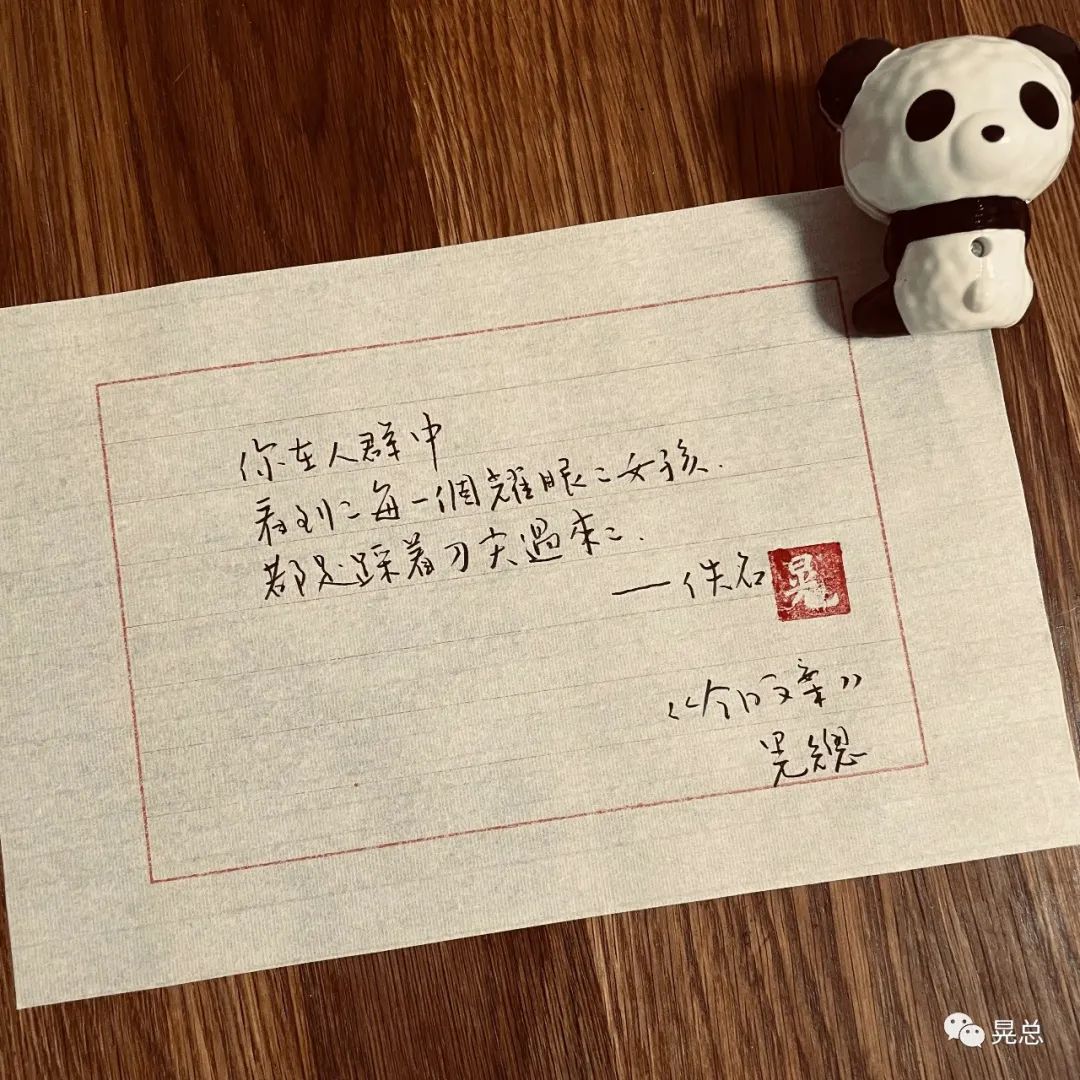 你在人群中
看到的每一個耀眼的女孩.
都是踩着刀尖過來的.
——佚名 晃
《今日文案》
晃總
晃总